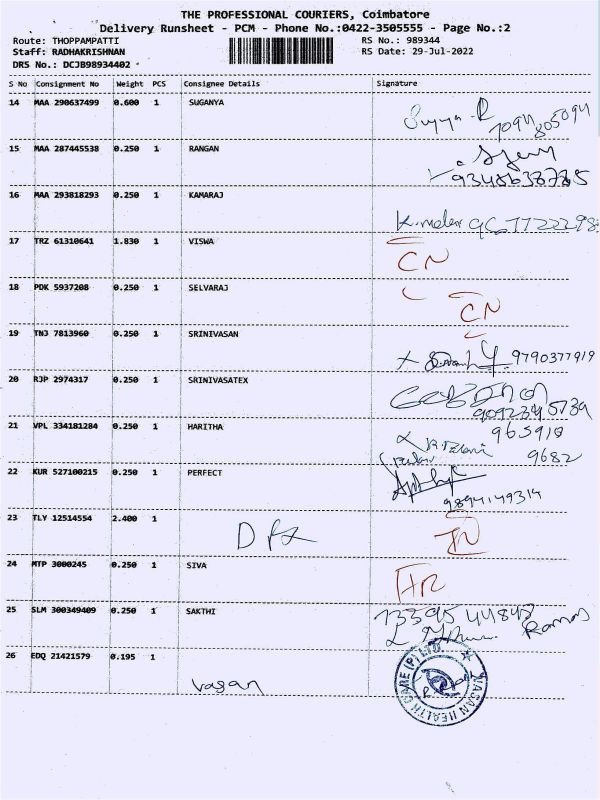 THE PROFESSIONAL COURIERS, Coimbatore
Delivery Runsheet - PCM - Phone No.:0422-3505555 - Page No.:2
Route: THOPPAMPATTI RS No.: 989344
Staff: RADHAKRISHNAN RS Date: 29-Jul-2022
DRS No.: DCJB98934402
S No Consignment No Weight PCS Consignee Details Signature
14 MAA 290637499 0.600 1 SUGANYA
15 MAA 287445538 0.250 1 RANGAN
16 MAA 293818293 0.250 1 KAMARAJ
17 TRZ 61310641 1.830 1 VISWA CN
18 PDK 5937208 0.250 1 SELVARAJ CN
19 TNJ 7813960 0.250 1 SRINIVASAN 9790377919
20 RJP 2974317 0.250 1 SRINIVASATEX
21 VPL 334181284 0.250 1 HARITHA 965918
9682
22 KUR 527100215 0.250 1 PERFECT
9894149314
23 TLY 12514554 2.400 1
24 MTP 3000245 0.250 1 SIVA
25 SLM 300349409 0.250 1 SAKTHI
26 EDQ 21421579 0.195 1 vasan
VASAN HEALTH CARE (P) LTD.